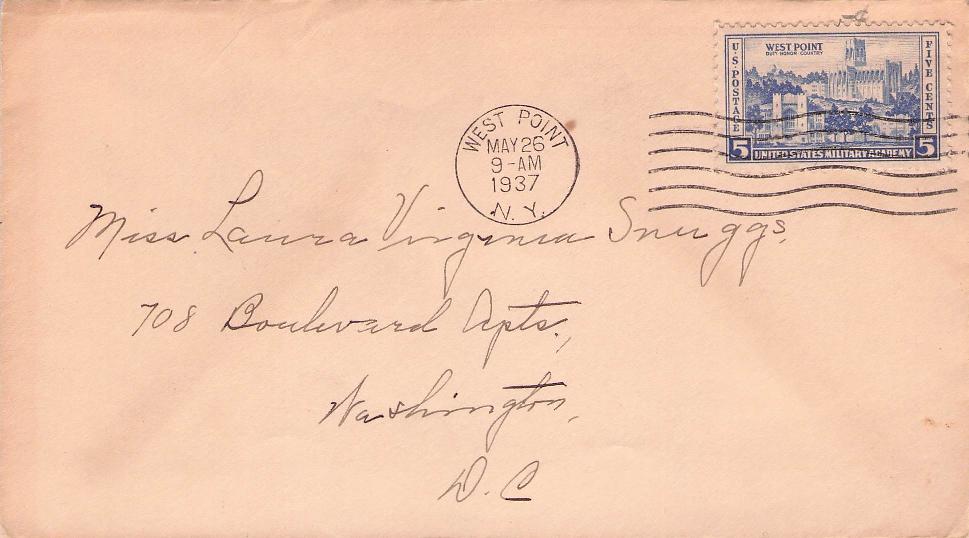 WEST POINT
DUTY HONOR COUNTRY
U.S. POSTAGE
FIVE CENTS
5 UNITED STATES MILITARY ACADEMY 5
WEST POINT
MAY 26
9-AM
1937
N.Y.
Miss Laura Virginia Snuggs,
708 Boulevard Apts.,
Washington,
D.C